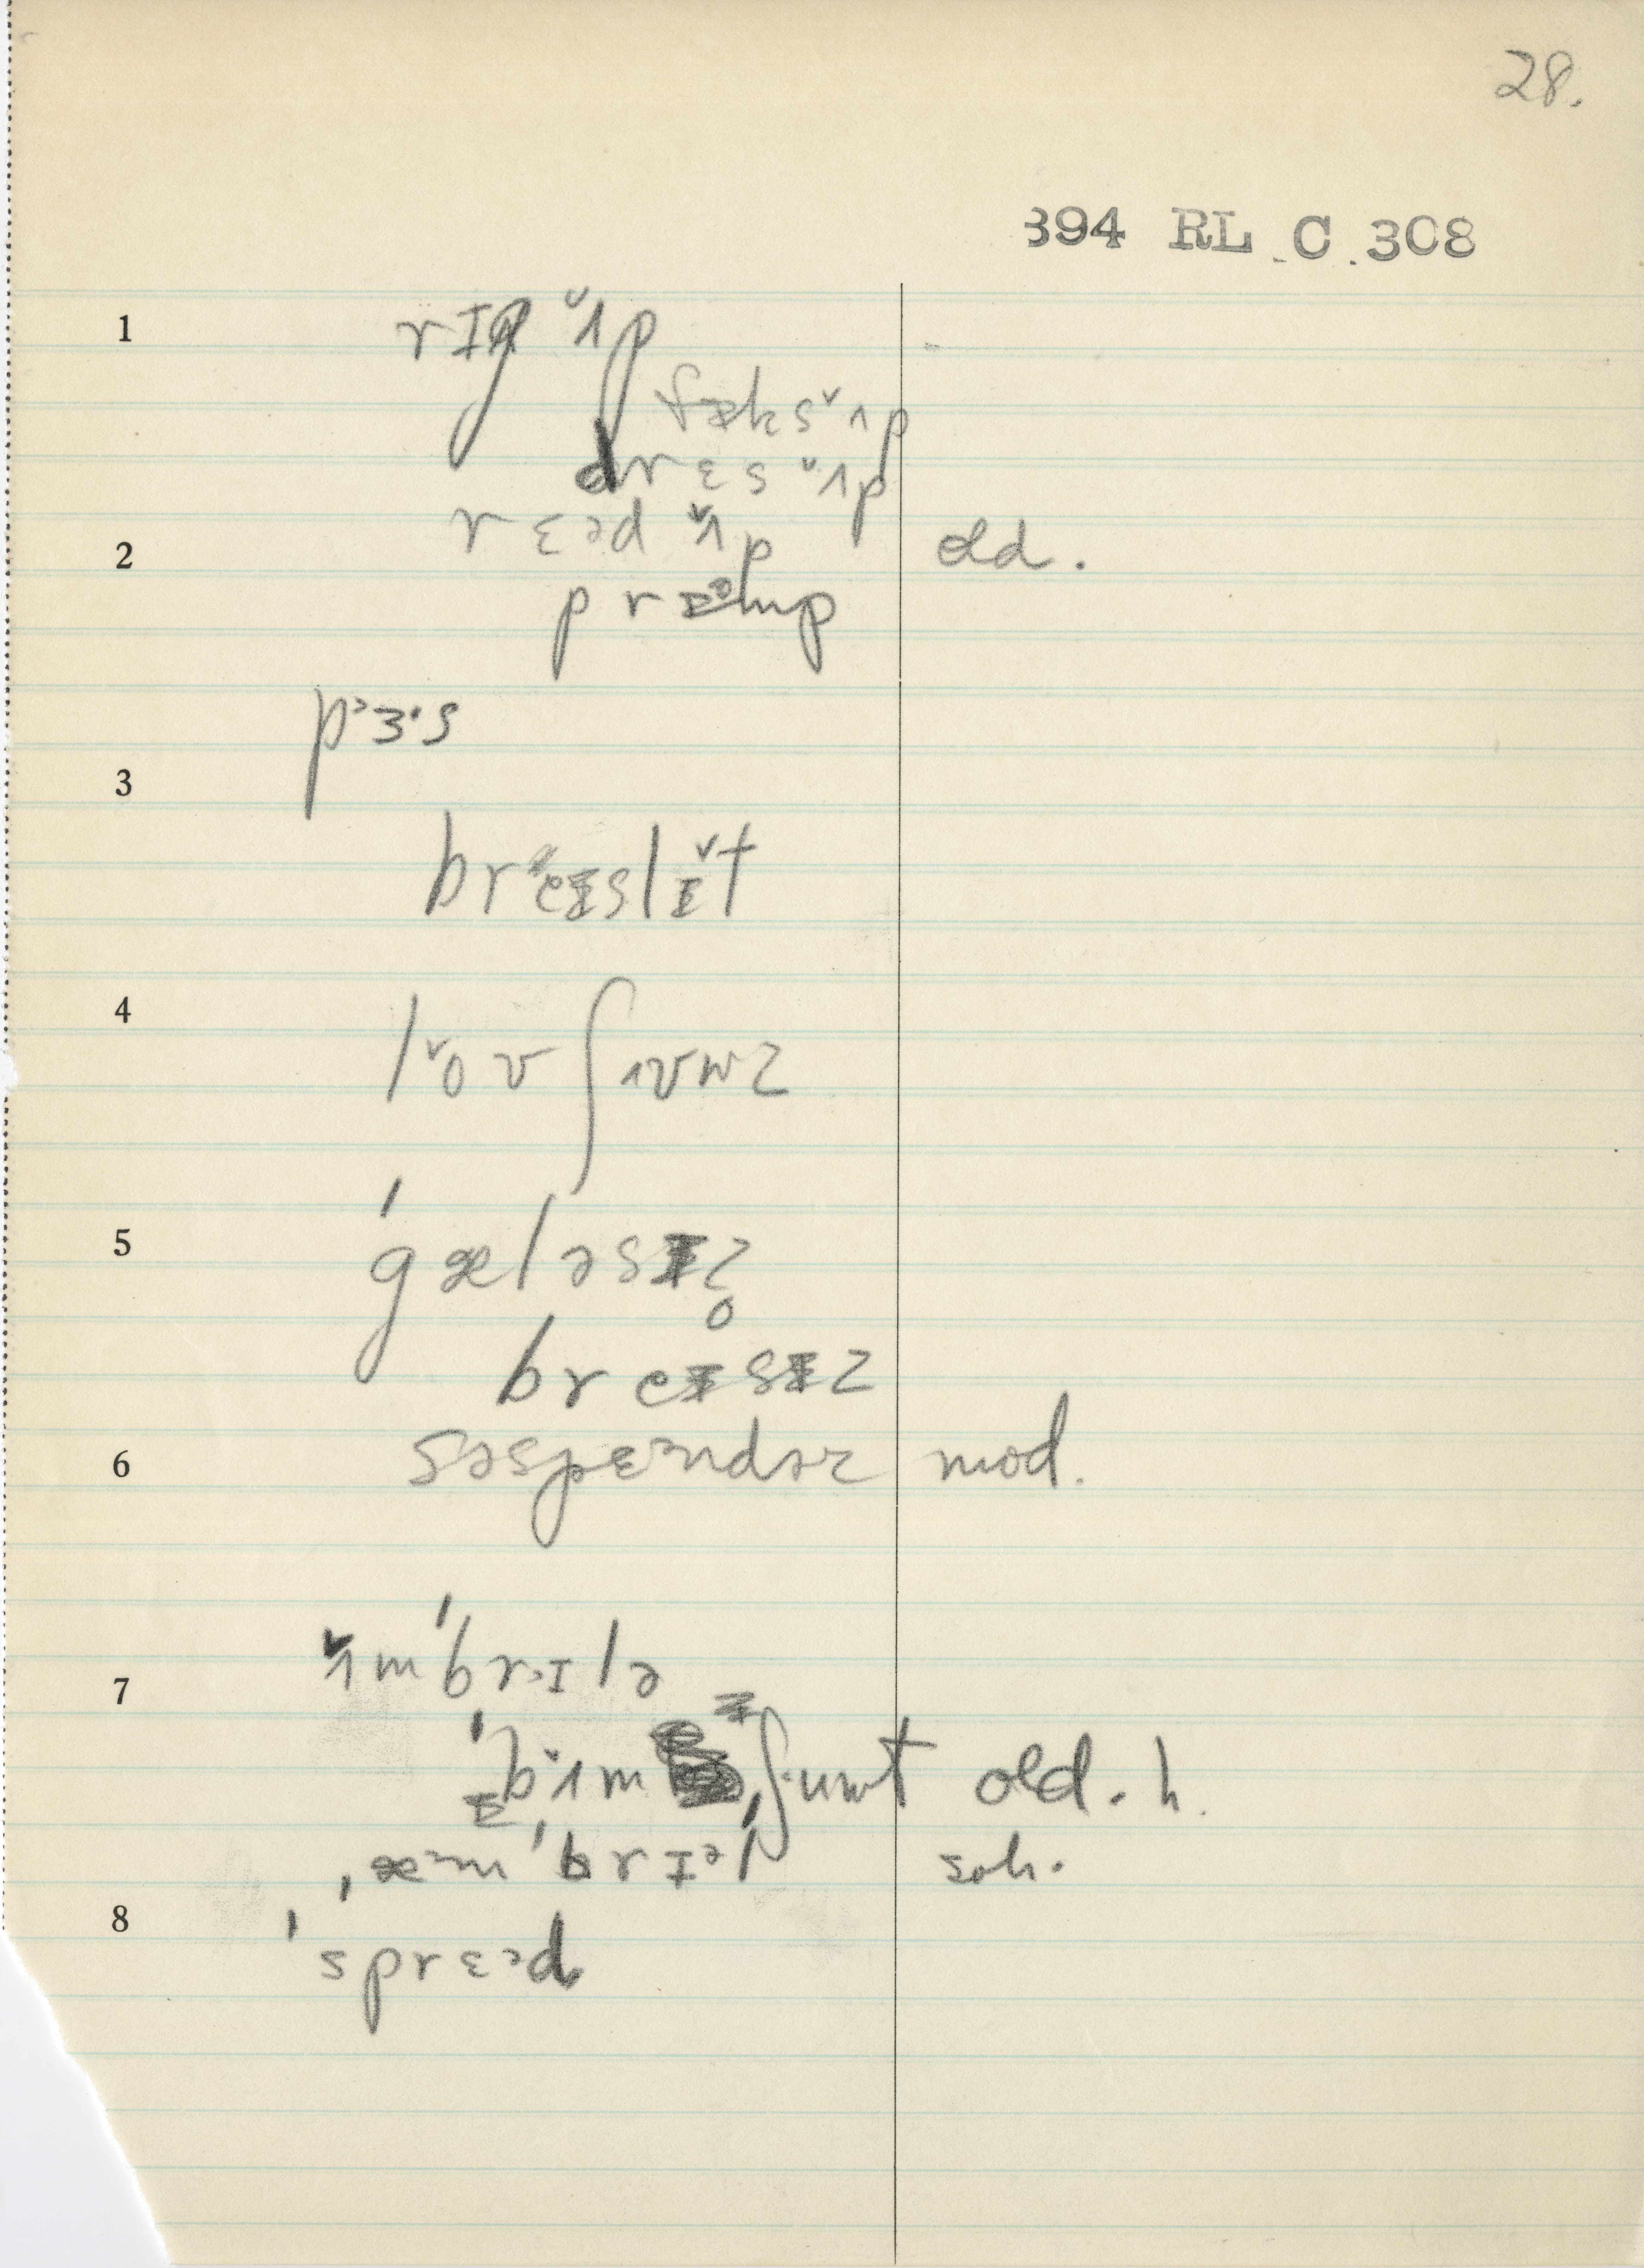 28.
394 RL C 308
1 rɪg ʌ̌p
fæks ʌ̌p
drɛs ʌ̌p
2 rɛᵊd ʌ̌p old.
prɪᵊmp
pɜ·s
3
breɪslɪ̌t
4 lǒʊ ʃʊuz
5 ˈgæləsɪz̥
breɪsɪz
6 səspɛᵊndər mod.
7 ʌ̌mˈbrɪlə
ˈbʌ̌mbɪˌʃuut old. h.
8 ˌæᵊmˈbrɪᵊl soh.
ˈsprɛᵊd